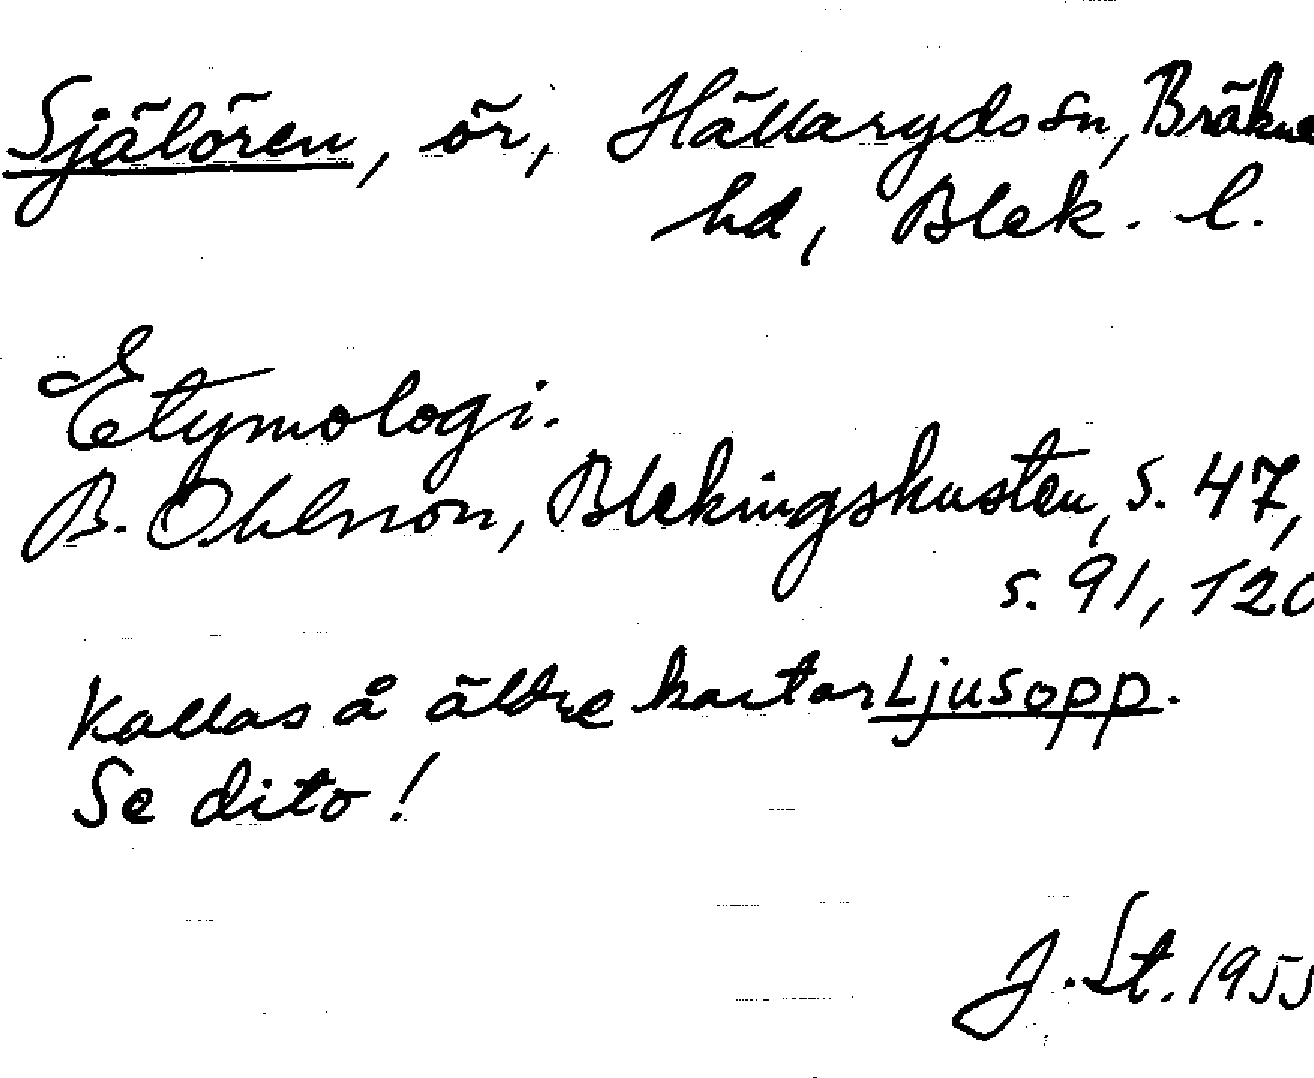 Själören, ör, Hällaryds sn, Bräkne
hd, Blek. l.
Etymologi.
B. Ohlsson, Blekingskusten, s. 47,
s. 91, 120
Kallas å äldre kartor Ljusopp.
Se dito!
J. St. 1955